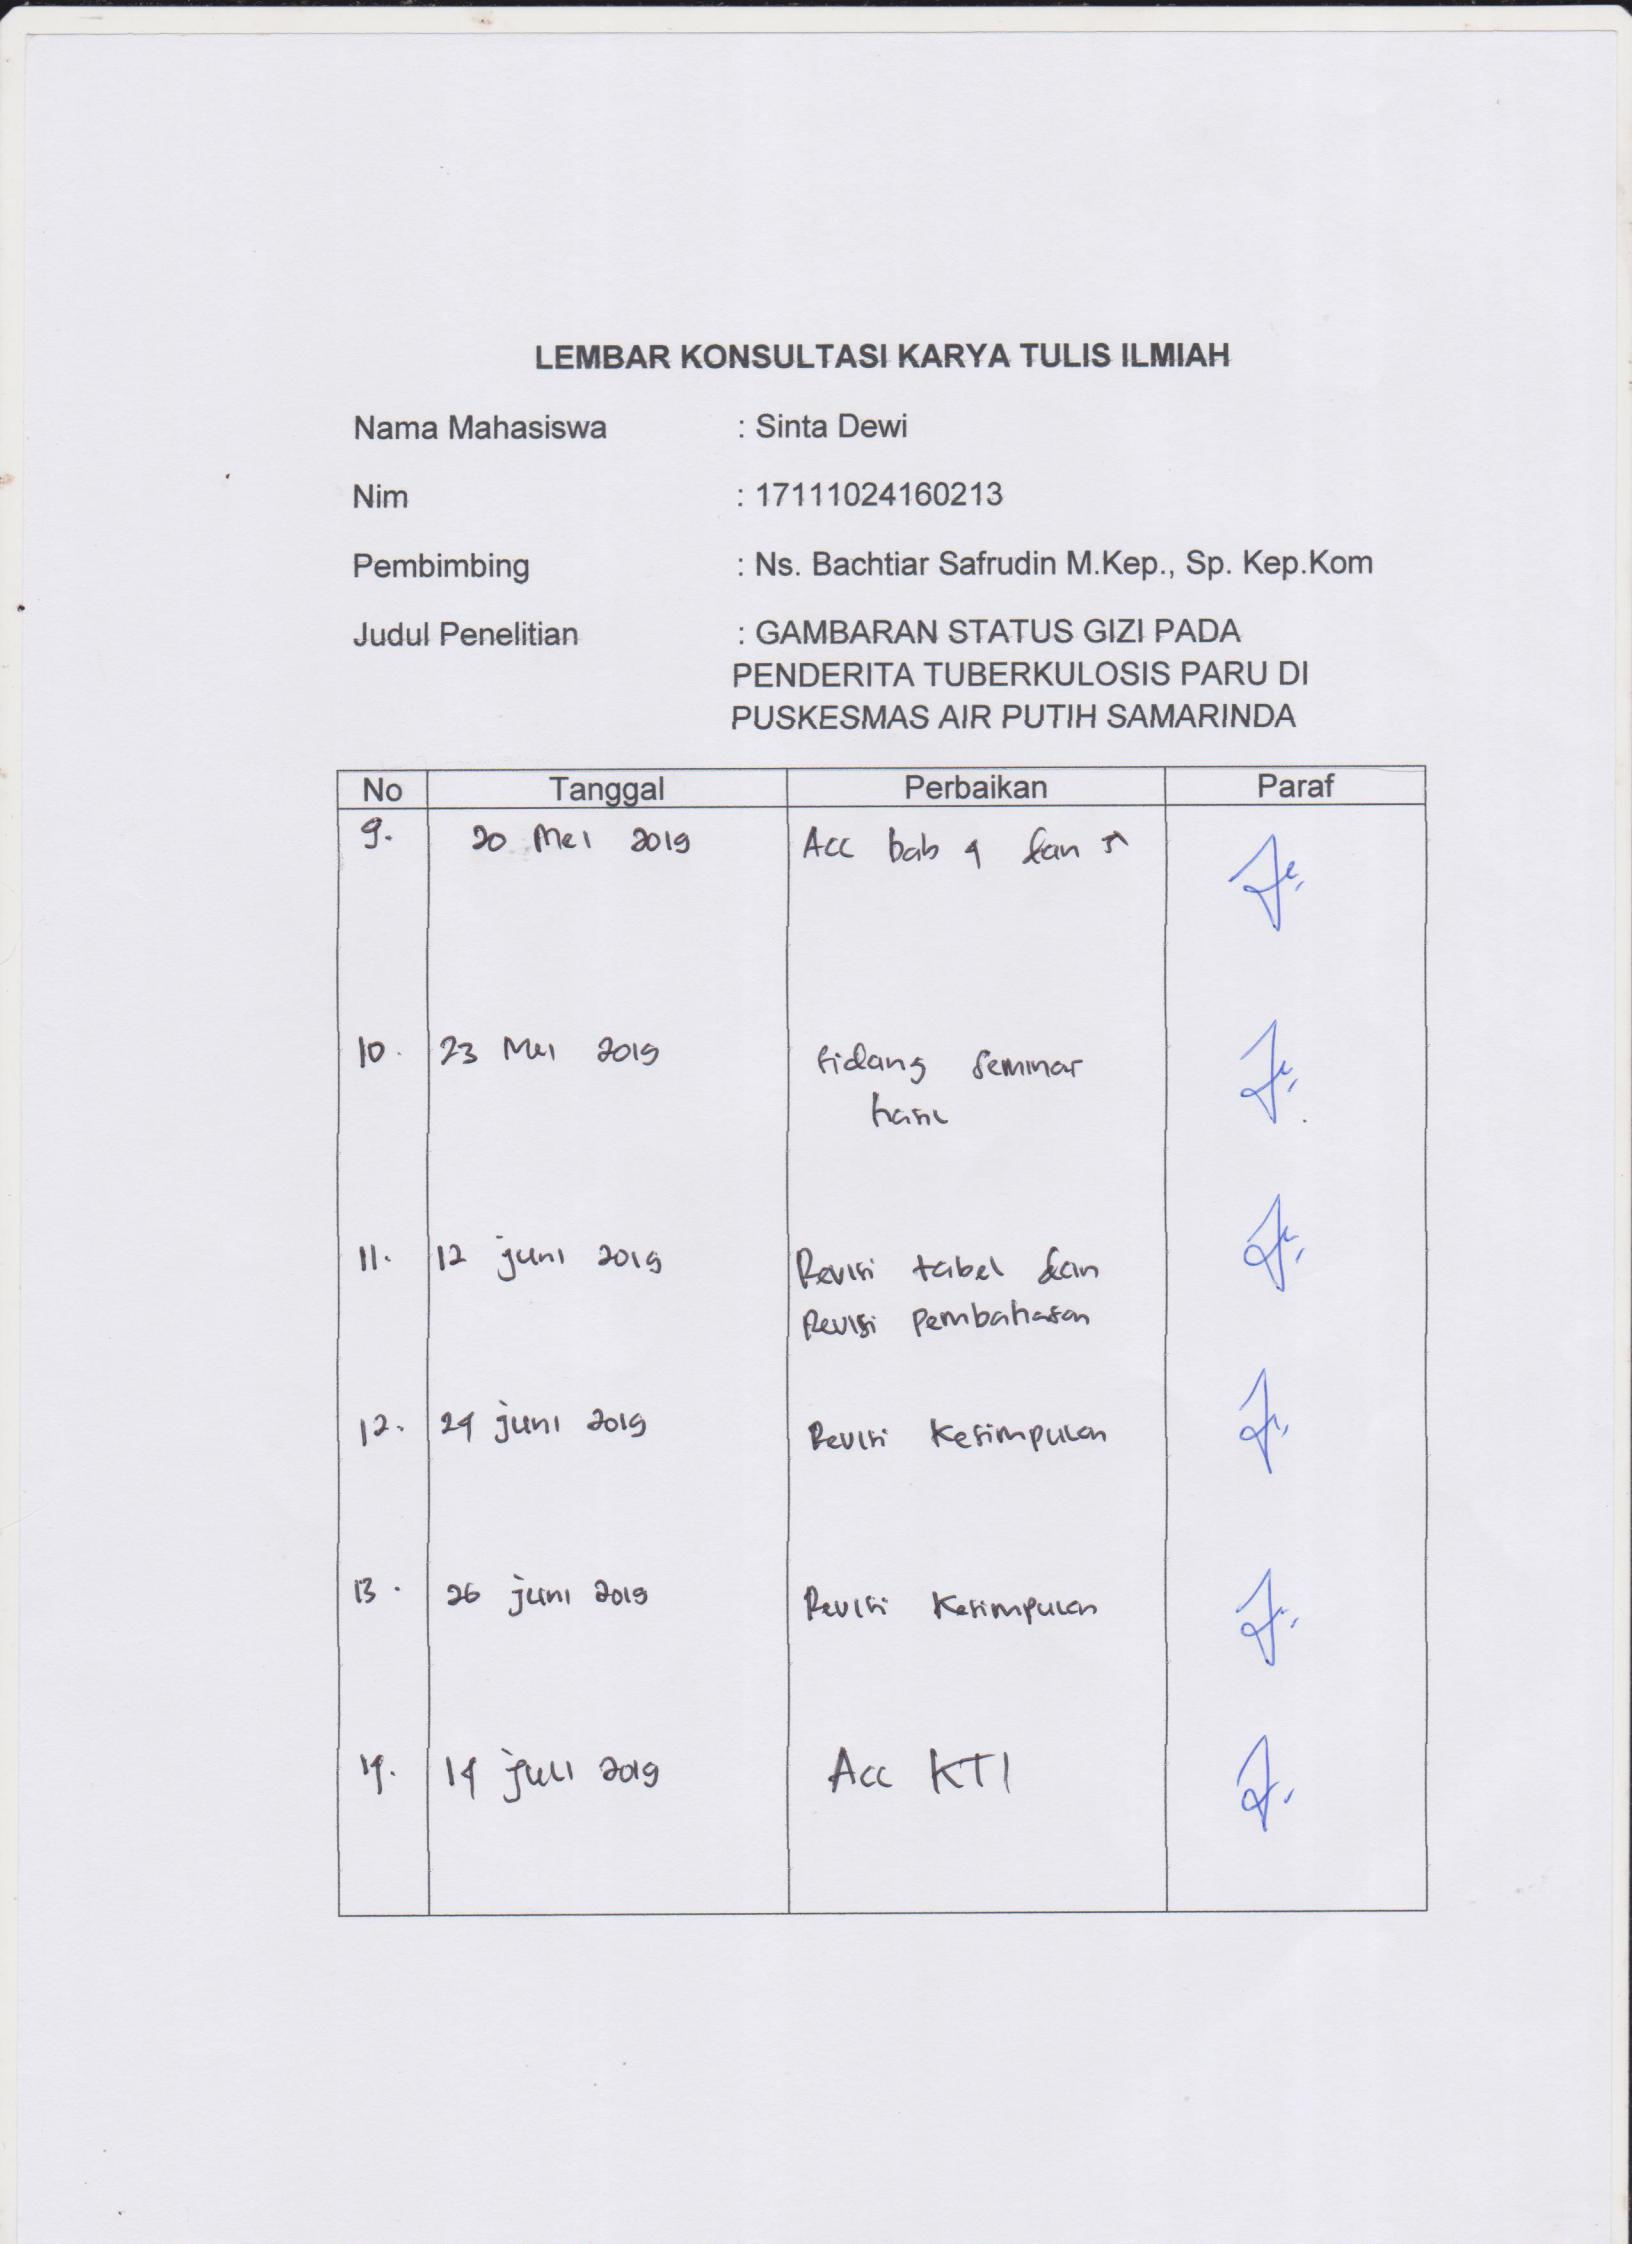 LEMBAR KONSULTASI KARYA TULIS ILMIAH
Nama Mahasiswa : Sinta Dewi
Nim : 17111024160213
Pembimbing : Ns. Bachtiar Safrudin M.Kep., Sp. Kep.Kom
Judul Penelitian : GAMBARAN STATUS GIZI PADA
PENDERITA TUBERKULOSIS PARU DI
PUSKESMAS AIR PUTIH SAMARINDA
No Tanggal Perbaikan Paraf
9. 20 Mei 2019 Acc bab 4 dan 5
10. 23 Mei 2019 Sidang Seminar
hasil
11. 12 juni 2019 Revisi tabel dan
Revisi Pembahasan
12. 24 juni 2019 Revisi Kesimpulan
13. 26 juni 2019 Revisi Kesimpulan
14. 14 juli 2019 Acc KTI